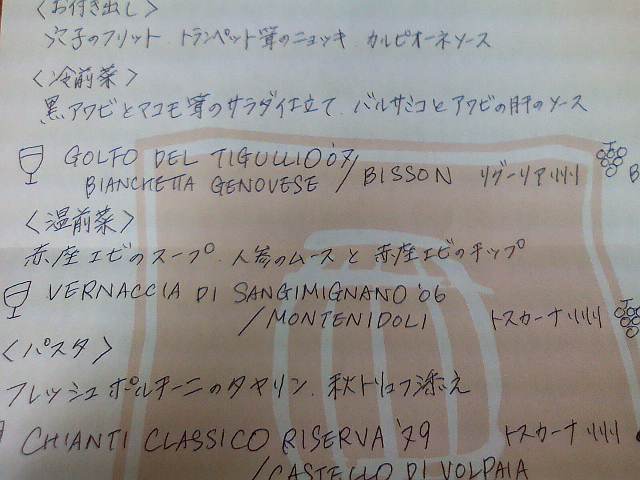 〈お付き出し〉
穴子のフリット、トランペット茸のニョッキ カルピオーネソース
〈冷前菜〉
黒アワビとマコモ茸のサラダ仕立て、バルサミコとアワビの肝のソース
GOLFO DEL TIGULLIO '07
BIANCHETTA GENOVESE / BISSON リグーリア州
B
〈温前菜〉
赤座エビのスープ、人参のムースと赤座エビのチップ
VERNACCIA DI SANGIMIGNANO '06
/ MONTENIDOLI トスカーナ州
〈パスタ〉
フレッシュポルチーニのタヤリン、秋トリュフ添え
CHIANTI CLASSICO RISERVA '79 トスカーナ州
/ CASTELLO DI VOLPAIA